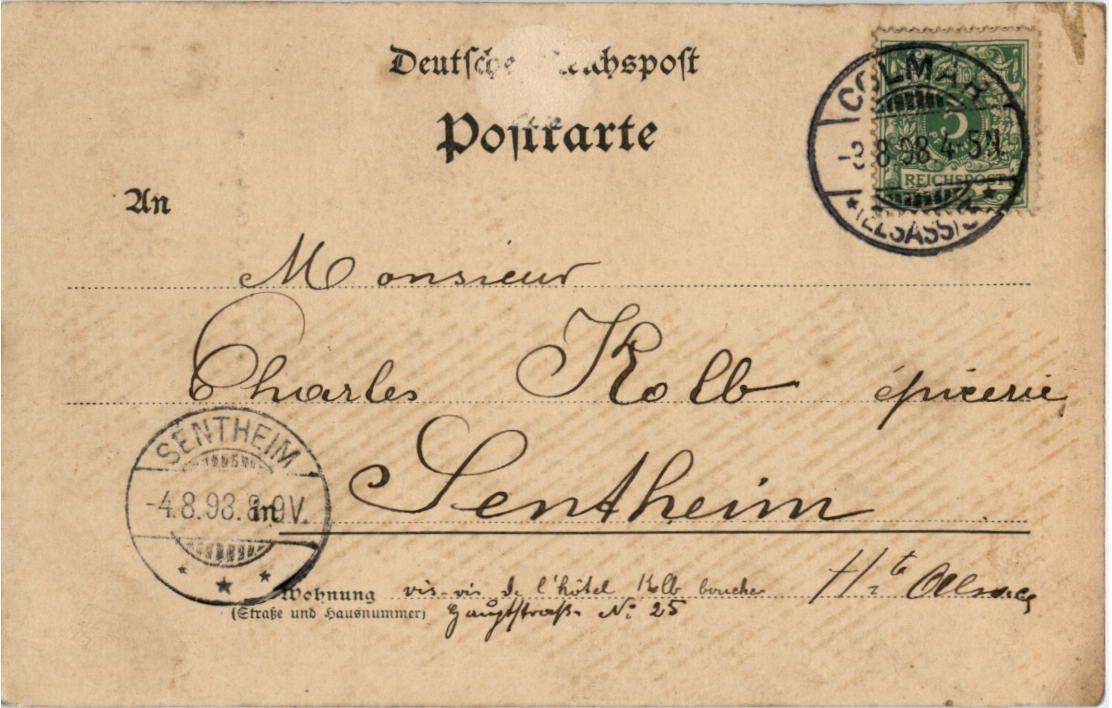 Deutsche Reichspost
Postkarte
COLMAR
-3.8.98 4-5N.
* (ELSASS) *
5
REICHSPOST
An
Monsieur
Charles Kolb épicerie,
SENTHEIM
-4.8.98. 8-9V.
in Sentheim
Wohnung vis-vis de l'hôtel Kolb boucher
Hte Alsace
(Straße und Hausnummer) Hauptstraße No 25